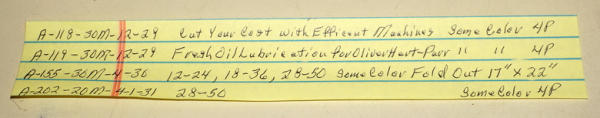 A-118-30M-12-29 Cut Your Cost with Efficent Machines Some Color 4P
A-119-30M-12-29 Fresh Oil Lubrication for Oliver Hart-Parr " " 4P
A-155-30M-4-36 12-24, 18-36, 28-50 Some Color Fold Out 17" x 22"
A-202-20M-4-1-31 28-50 Some Color 4P